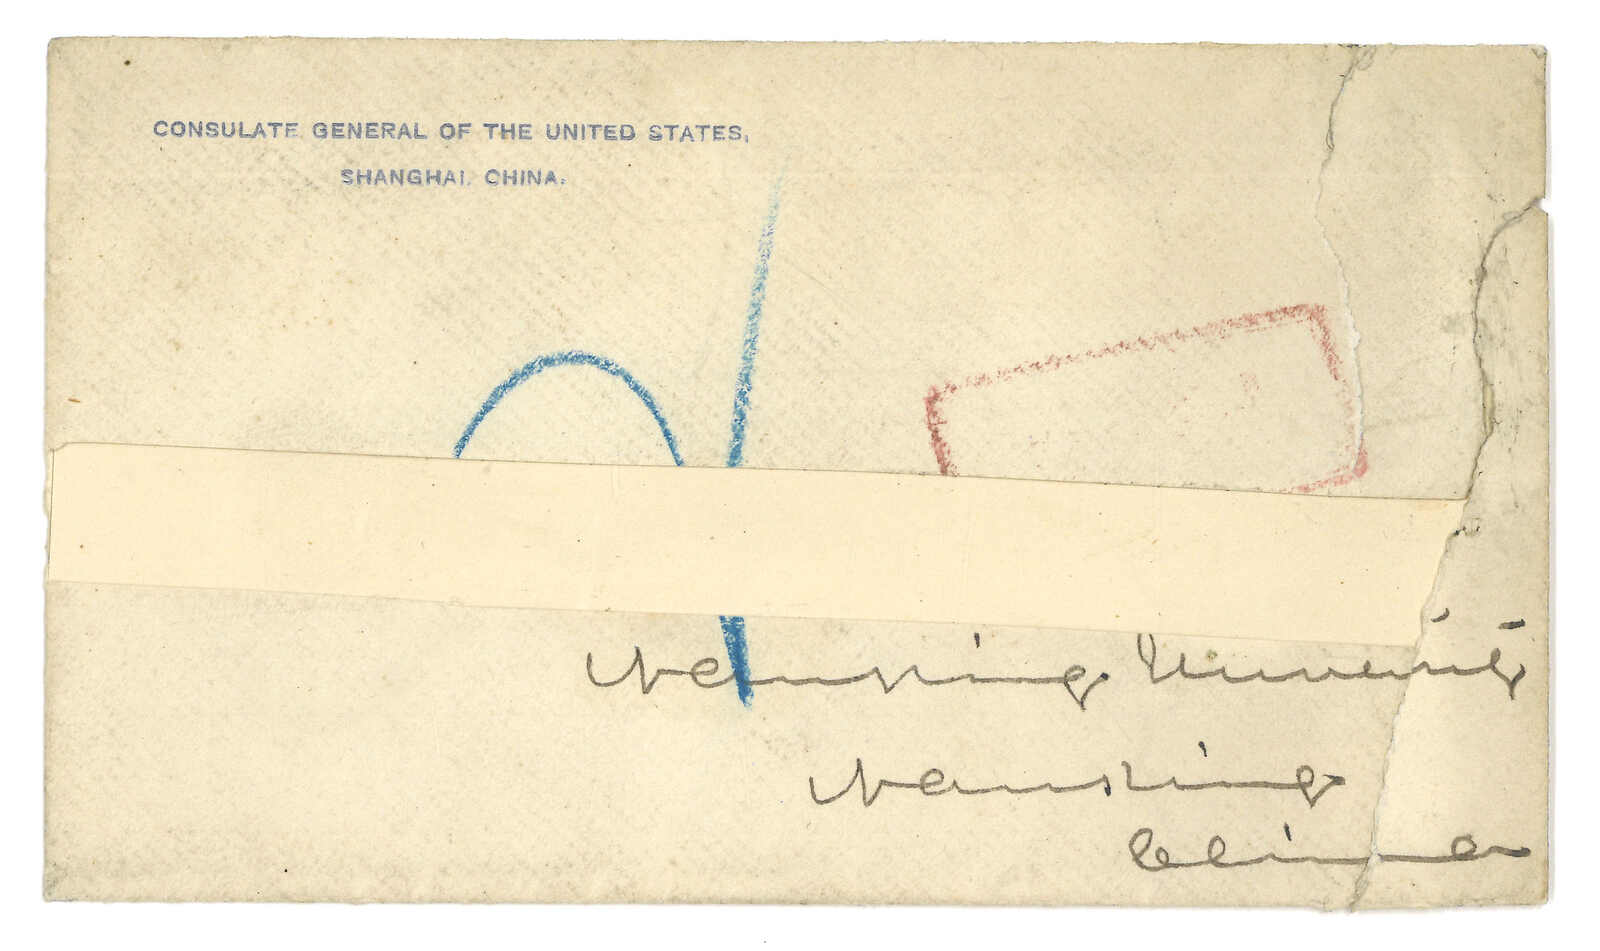 CONSULATE GENERAL OF THE UNITED STATES,
SHANGHAI, CHINA.
Nanking University
Nanking
China